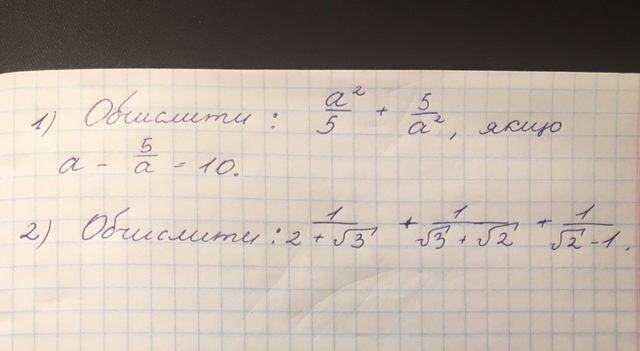 1) Обчислити: a²/5 + 5/a², якщо
a - 5/a = 10.
2) Обчислити: 1/(2+√3) + 1/(√3+√2) + 1/(√2-1).